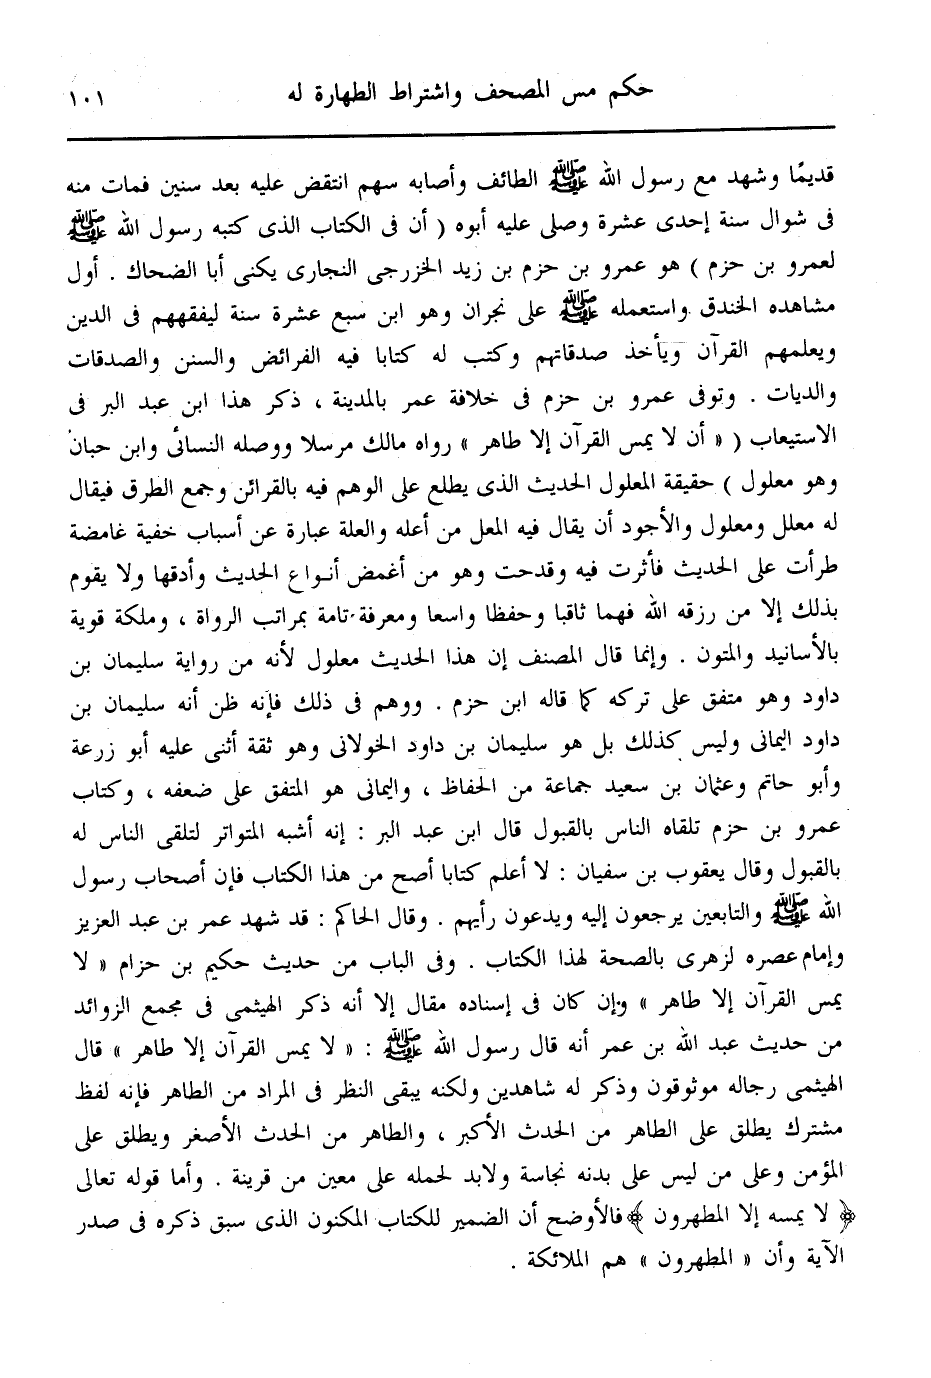 حكم مس المصحف واشتراط الطهارة له ١٠١
قديمًا وشهد مع رسول الله ﷺ الطائف وأصابه سهم انتقض عليه بعد سنين فمات منه
فى شوال سنة إحدى عشرة وصلى عليه أبوه ( أن فى الكتاب الذى كتبه رسول الله ﷺ
لعمرو بن حزم ) هو عمرو بن حزم بن زيد الخزرجى النجارى يكنى أبا الضحاك . أول
مشاهده الخندق واستعمله ﷺ على نجران وهو ابن سبع عشرة سنة ليفقههم فى الدين
ويعلمهم القرآن ويأخذ صدقاتهم وكتب له كتابا فيه الفرائض والسنن والصدقات
والديات . وتوفى عمرو بن حزم فى خلافة عمر بالمدينة ، ذكر هذا ابن عبد البر فى
الاستيعاب ( « أن لا يمس القرآن إلا طاهر » رواه مالك مرسلا ووصله النسائى وابن حبان
وهو معلول ) حقيقة المعلول الحديث الذى يطلع على الوهم فيه بالقرائن وجمع الطرق فيقال
له معلل ومعلول والأجود أن يقال فيه المعل من أعله والعلة عبارة عن أسباب خفية غامضة
طرأت على الحديث فأثرت فيه وقدحت وهو من أغمض أنواع الحديث وأدقها ولا يقوم
بذلك إلا من رزقه الله فهما ثاقبا وحفظا واسعا ومعرفة تامة بمراتب الرواة ، وملكة قوية
بالأسانيد والمتون . وإنما قال المصنف إن هذا الحديث معلول لأنه من رواية سليمان بن
داود وهو متفق على تركه كما قاله ابن حزم . ووهم فى ذلك فإنه ظن أنه سليمان بن
داود اليمانى وليس كذلك بل هو سليمان بن داود الخولانى وهو ثقة أثنى عليه أبو زرعة
وأبو حاتم وعثمان بن سعيد جماعة من الحفاظ ، واليمانى هو المتفق على ضعفه ، وكتاب
عمرو بن حزم تلقاه الناس بالقبول قال ابن عبد البر : إنه أشبه المتواتر لتلقى الناس له
بالقبول وقال يعقوب بن سفيان : لا أعلم كتابا أصح من هذا الكتاب فإن أصحاب رسول
الله ﷺ والتابعين يرجعون إليه ويدعون رأيهم . وقال الحاكم : قد شهد عمر بن عبد العزيز
وإمام عصره لزهرى بالصحة لهذا الكتاب . وفى الباب من حديث حكيم بن حزام « لا
يمس القرآن إلا طاهر » وإن كان فى إسناده مقال إلا أنه ذكر الهيثمى فى مجمع الزوائد
من حديث عبد الله بن عمر أنه قال رسول الله ﷺ : « لا يمس القرآن إلا طاهر » قال
الهيثمى رجاله موثوقون وذكر له شاهدين ولكنه يبقى النظر فى المراد من الطاهر فإنه لفظ
مشترك يطلق على الطاهر من الحدث الأكبر ، والطاهر من الحدث الأصغر ويطلق على
المؤمن وعلى من ليس على بدنه نجاسة ولابد لحمله على معين من قرينة . وأما قوله تعالى
﴿ لا يمسه إلا المطهرون ﴾ فالأوضح أن الضمير للكتاب المكنون الذى سبق ذكره فى صدر
الآية وأن « المطهرون » هم الملائكة .